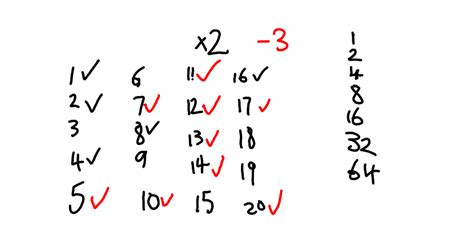 ×2 -3
1✓ 6 11✓ 16✓ 1
2✓ 7✓ 12✓ 17✓ 2
3 8✓ 13✓ 18 4
4✓ 9 14✓ 19 8
5✓ 10✓ 15 20✓ 16
32
64